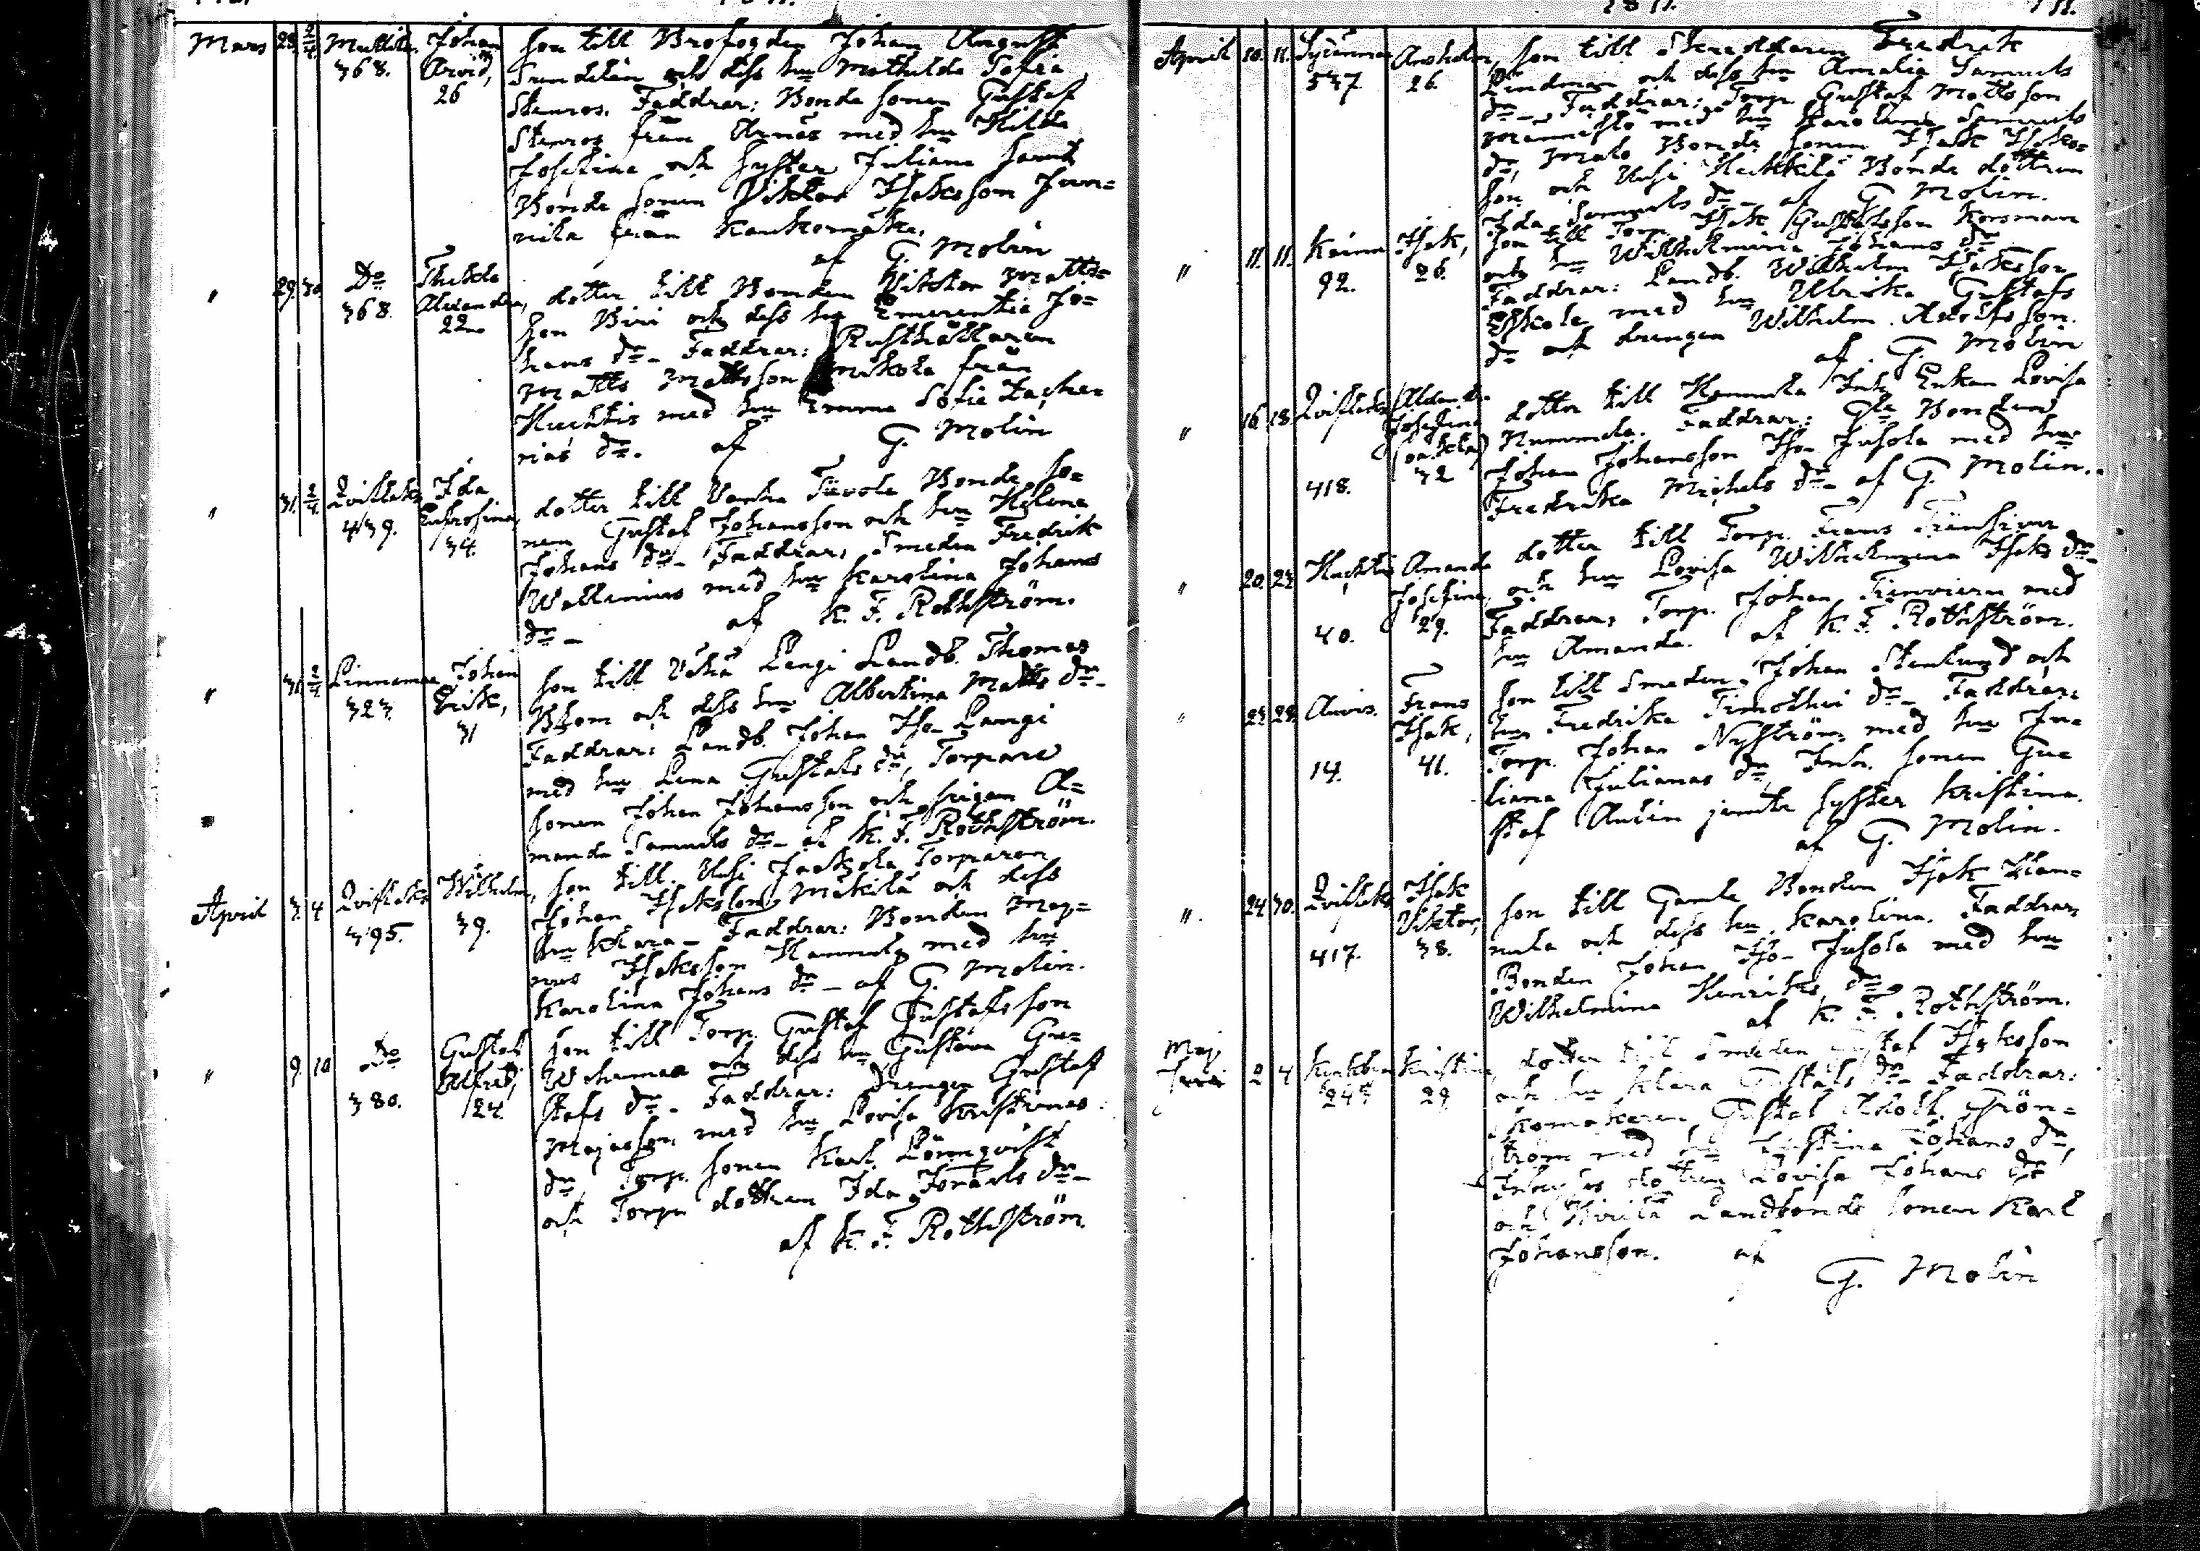 Mars 28. 2/4. Johan Arvid, 26
368.
son till Brofogden Johan August
och dess hu Mathilda Sofia
Stenros. Faddrar: Bonde sonen Gustaf
Stenros från Arnäs med hu Hilda
Josefina och syster Juliana samt
Bonde sonen Viktor Isaksson Jun-
nila från
af G. Molin
" 29. 30. Do 368. Thekla Alexandra, 22
dotter till Bonden Matts-
son Biri och dess hu Emerentia Jo-
hans dr. Faddrar: Rusthållaren
Matts Mattsson Mikola från
Huhtis med hu Emma Sofia Zacha-
rias dr. af G. Molin
" 31. 2/4. Qvifleks 439. Ida Eufrosina, 34.
dotter till Vanha Bonde so-
nen Gustaf Johansson och hu Helena
Johans dr. Faddrar: Smeden Fredrik
Wallenius med hu Karolina Johans
dr. af K. F. Rothström.
" 31. 2/4. Linnamaa 323. Johan Erik, 31
son till Vähä Langi Landb. Thomas
Blom och dess hu Albertina Matts dr.
Faddrar: Landb. Johan Langi
med hu Lena Gustafs dr, Torpare
sonen Johan Johansson och pigan A-
manda Samuels dr. af K. F. Rothström.
April 3. 4 Qvifleks 395. Wilhelm, 39.
son till Uusi Jaakola Torparen
Johan Isaksson Mikilä och dess
hu Klara. Faddrar: Bonden Mag-
nus Isaksson Hannula med hu
Karolina Johans dr. af G. Molin.
" 9. 10 Do 380. Gustaf Alfred, 24.
son till Torp. Gustaf Gustafsson
och dess hu Gustava Gu-
stafs dr. Faddrar: Drengen Gustaf
Majasson med hu Lovisa Kristinas
dr, Torp. sonen Karl Lönnqvist
och Torp. dottren Ida Israels dr.
af K. F. Rothström.
April 10. 11. 537. 26.
son till Skreddaren Fredrik
Lindman och dess hu Amalia Samuels
dr. Faddrar: Torp. Gustaf Mattsson
med hu Karolina Samuels
dr, Bonde sonen Isak Isaks-
son och Uusi Heikkilä Bonde dottren
Ida Samuels dr. af G. Molin.
" 11. 11. Kärinä 92. Isak, 26.
son till Torp. Isak Gustafsson Korsman
och hu Wilhelmina Johans dr.
Faddrar: Landb. Wilhelm Isaksson
Eskola med hu Ulrika Gustafs
dr och drengen Wilhelm Adolfsson.
af G. Molin
" 16. 18. Qvifleks 418. Josefina 32
dotter till Hannula Inh. Enkan Lovisa
Faddrar: Gla Bonden
Johan Johansson Jusola med hu
Fredrika Michels dr. af G. Molin.
" 20. 23. Huhtis 40. Amanda Josefina, 29.
dotter till Torp. Frans
och hu Lovisa Wilhelmina Isaks dr.
Faddrar: Torp. Johan med
hu Amanda. af K. F. Rothström.
" 14. Frans Isak, 41.
son till Smeden Johan Stenlund och
hu Fredrika Timothei dr. Faddrar:
Torp. Johan Nyström med hu Ju-
liana Julianas dr, Inh. sonen Gu-
staf jemte syster Kristina.
af G. Molin.
" 24. 30. Qvifleks 417. Isak Viktor, 38.
son till Gamla Bonden Isak Han-
nula och dess hu Karolina. Faddrar:
Bonden Johan Jusola med hu
Wilhelmina Henriks dr.
af K. F. Rothström.
Maj 2 4 Kristina, 29
dotter till Smeden Gustaf Isaksson
och hu Klara Gustafs dr. Faddrar:
Skomakaren Gustaf Adolf Grön-
ström med hu Justina Johans dr,
dottren Lovisa Johans dr
och Landbonde sonen Karl
Johansson. af
G. Molin